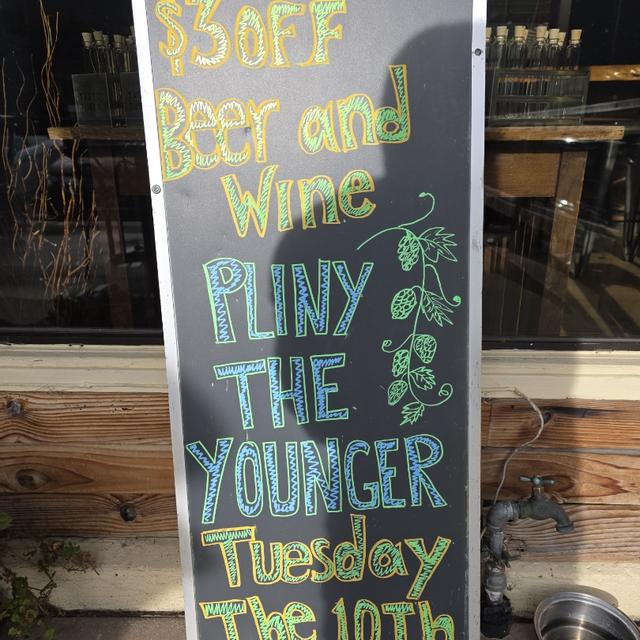 $3 OFF
Beer and
Wine
PLINY
THE
YOUNGER
Tuesday
The 10Th